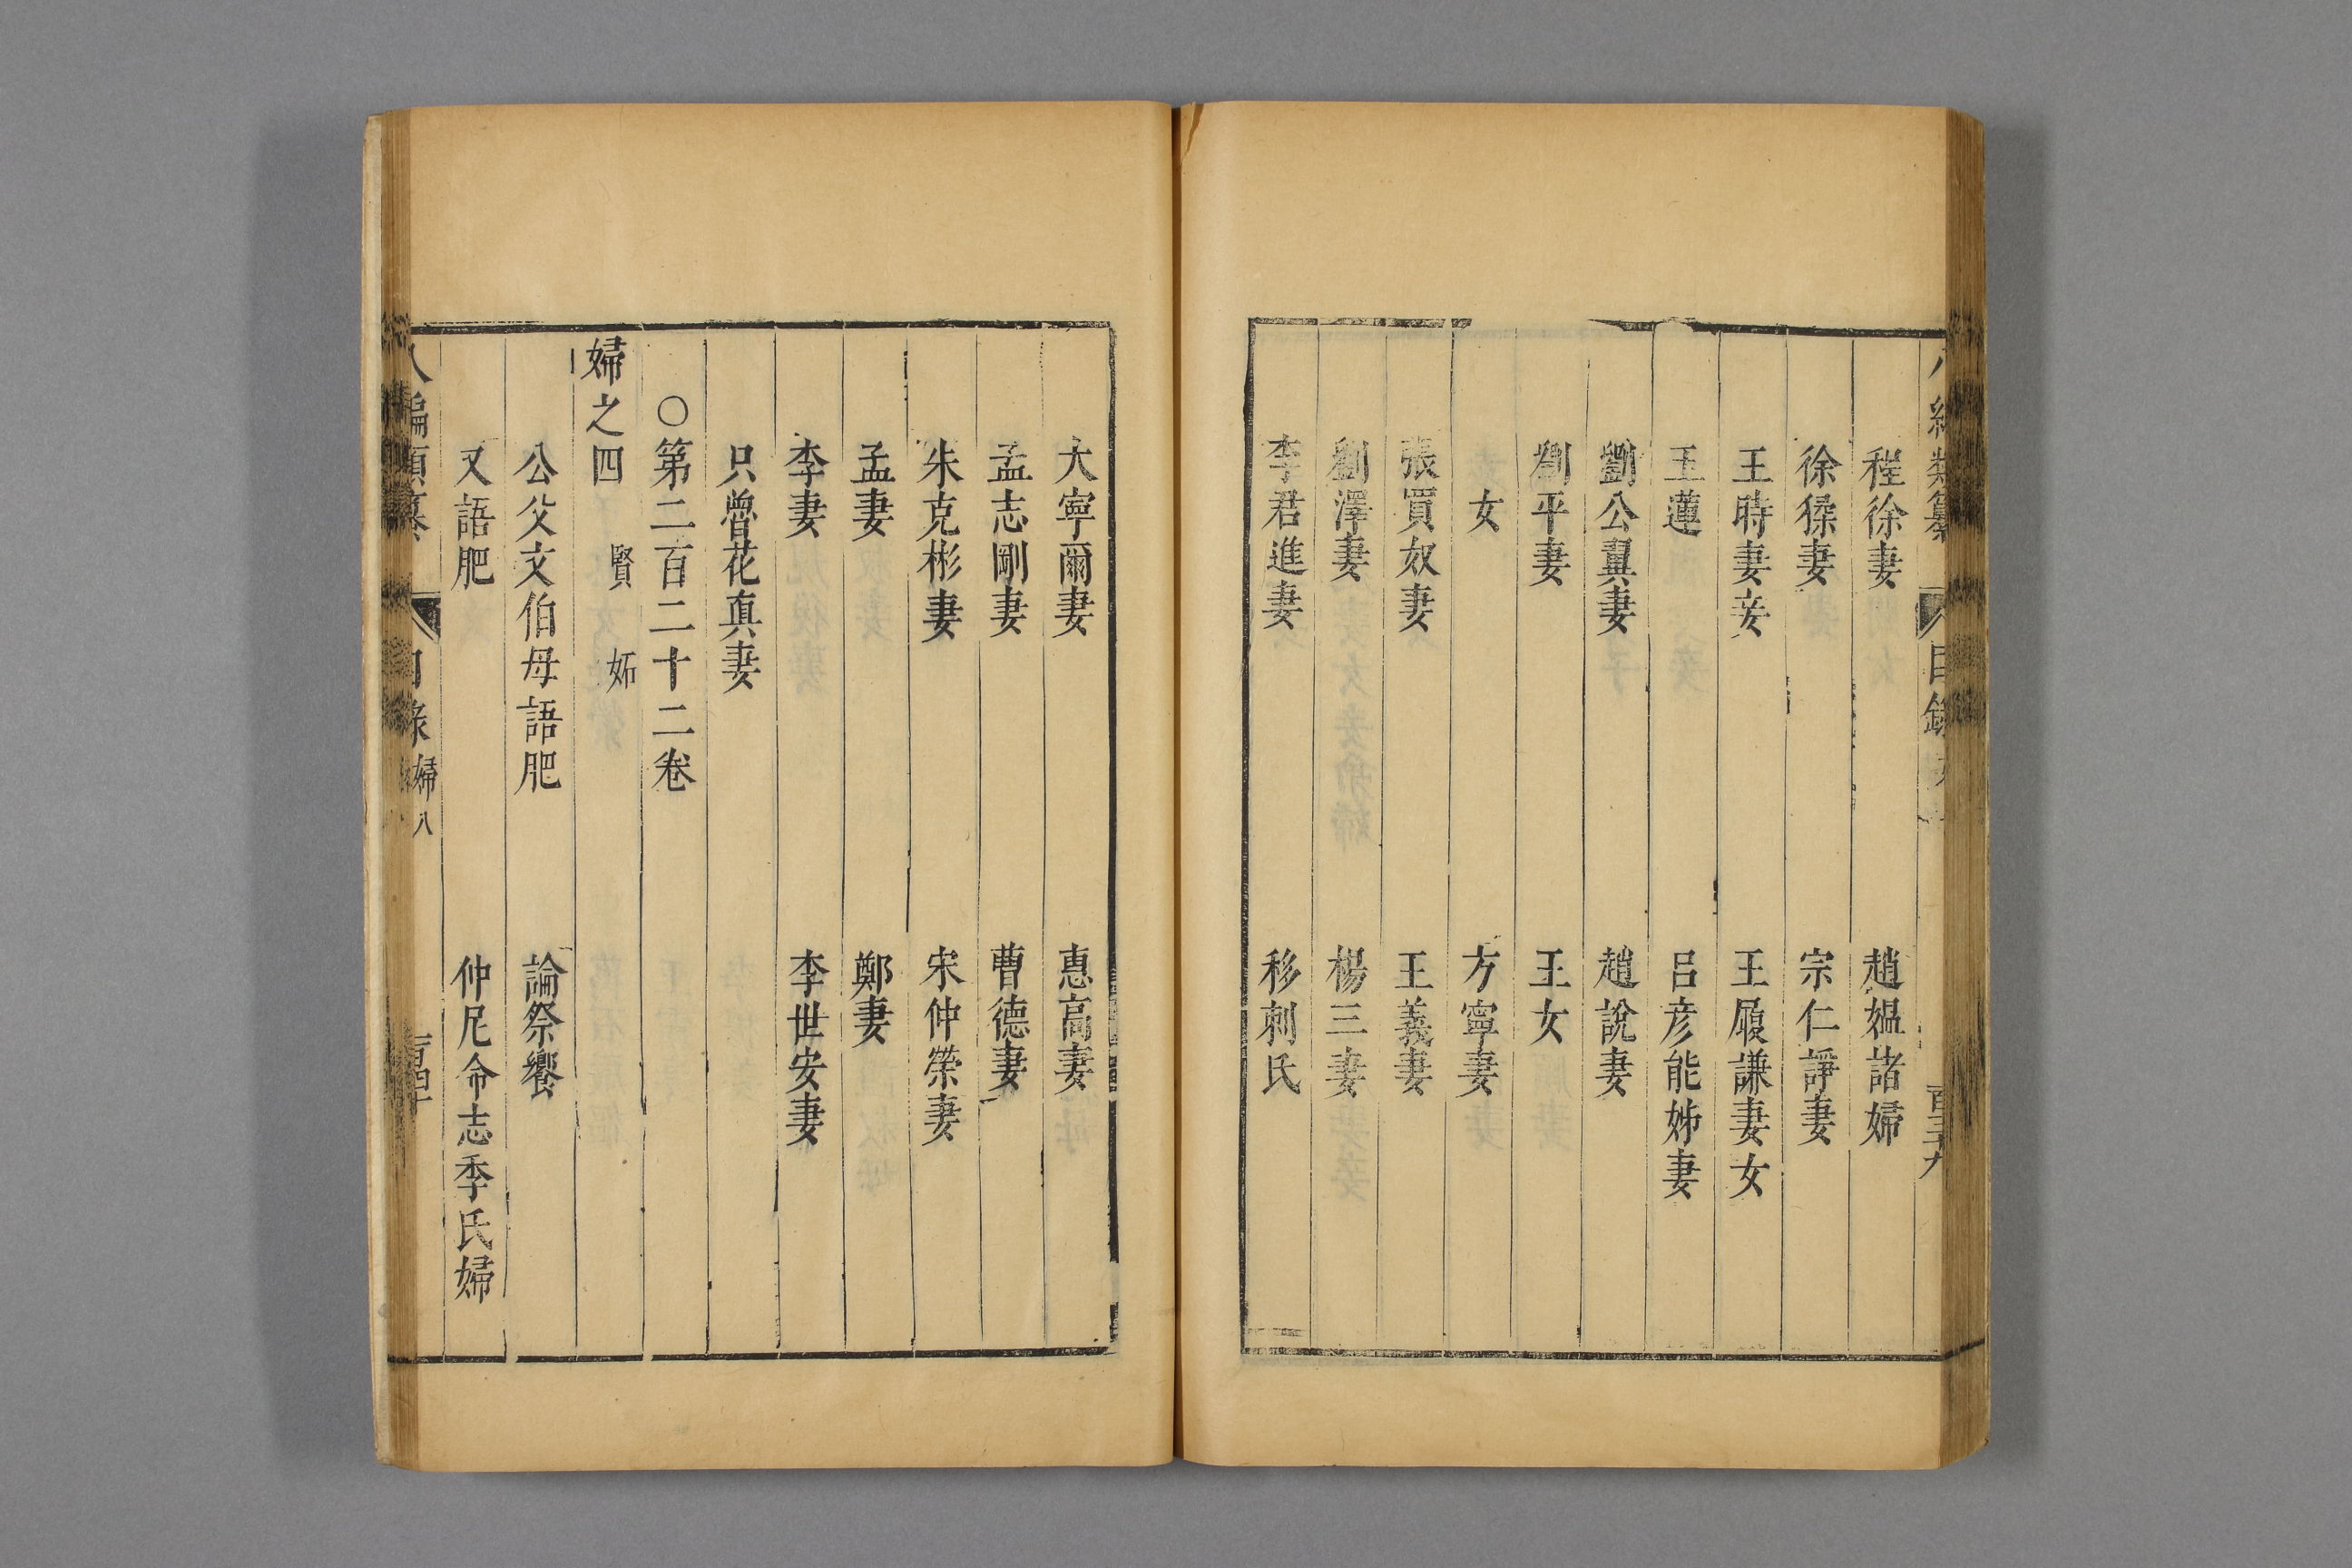 程徐妻　趙媪諸婦
徐猱妻　宗仁諍妻
王時妻妾　王履謙妻女
玉蓮　呂彦能姊妻
劉公翼妻　趙說妻
劉平妻　王女
女　方寧妻
張買奴妻　王義妻
劉澤妻　楊三妻
李君進妻　移剌氏
大寧爾妻　惠高妻
孟志剛妻　曹德妻
朱克彬妻　宋仲榮妻
孟妻　鄭妻
李妻　李世安妻
只魯花真妻
○第二百二十二卷
婦之四　賢　妬
公父文伯母語肥　論祭饗
又語肥　仲尼命志季氏婦